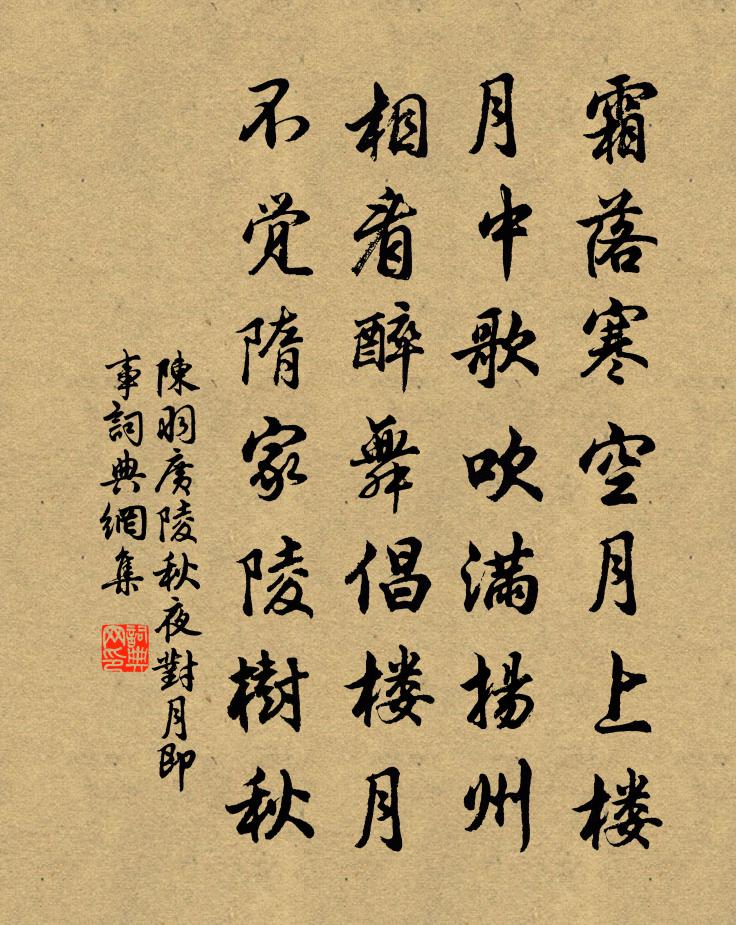 霜落寒空月上楼
月中歌吹满揚州
相看醉舞倡楼月
不觉隋家陵樹秋
陳羽廣陵秋夜對月即
事詞典網集
詞典
网印